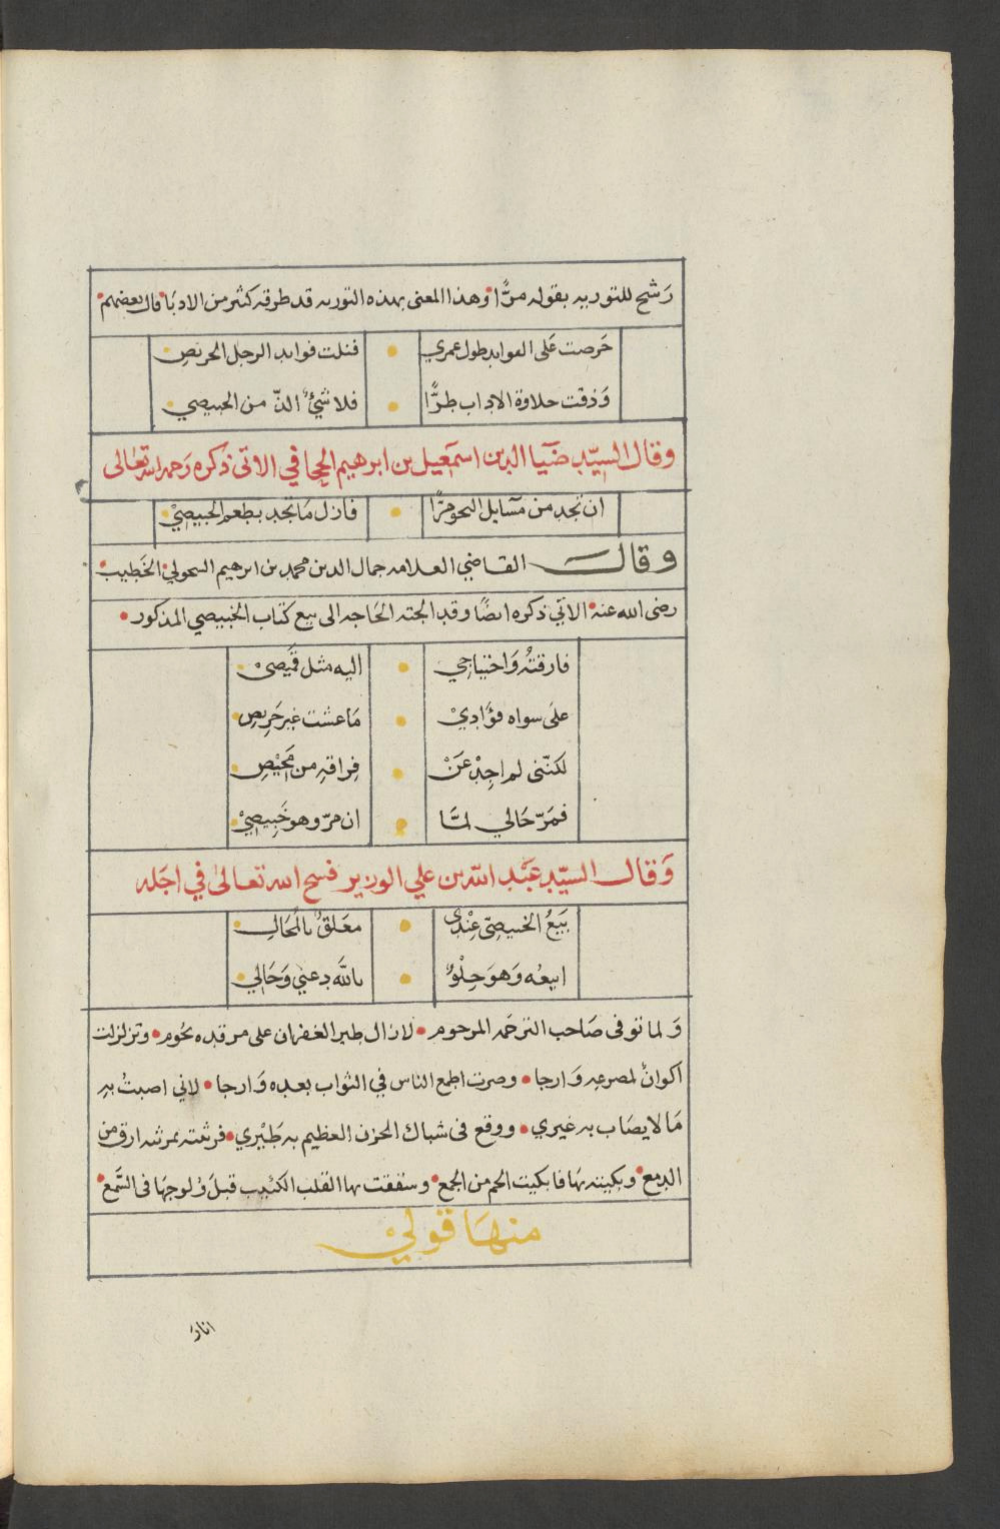 رَشح للتوريه بقوله مرًّا وهذا المعنى بهذه التوريه قد طرقه كثير من الادبَا قال بعضهم
حَرصت عَلى الفوايد طول عمري • فنلت فوايد الرجل الحريصِ
وَذقت حلاوة الاداب طرًّا • فلا شيءٌ الذّ من الخبيصي
وقال السيّد ضيَا الدين اسمَعيل بن ابرهيم الحجافي الاتى ذكره رَحمه الله تعالى
ان تجد من مسَايل النحو مرًّا • فازل مَا تجد بطعم الخبيصيْ
وقال القاضي العلامه جمال الدين محمد بن ابرهيم السحولي الخَطيب
رضى الله عنه الاتي ذكره ايضًا وقد الجته الحَاجه الى بيع كتاب الخبيصي المذكور •
فارقتُه وَاحتيَاجي • اليه مثل قَميصىْ
علَى سواه فؤَاديْ • مَا عشت غير حَريصِ
لكنّنى لم اجِدْ عَنْ • فِراقهِ من مَحِيْصِ
فمَرّ حَالي لمَّا • ان مرّ وهو خَبيصِيْ
وَقال السيّد عَبْد الله بن علي الوزير فسح الله تعالىٰ في اجَله
بَيعُ الخبيصيّ عِنْدى • معَلقٌ بالمُحَالِ
ابيعُه وَهوَ حِلْوٌ • بالله دعني وَحَالِي
وَلما توفى صَاحب الترجَمه المرحوم • لازال طير الغفران على مرقده يحُوم • وتزلزلت
اكوانٌ لمصرعِه وَارجا • وصرت اطمع الناس في الثواب بعده وَارجا • لاني اصبتُ بهِ
مَا لا يصَاب به غيري • ووقع فى شباك الحزن العظيم به طَيْري • فرثيته بمرثيه ارق من
الدمع • وبكيته بهَا فابكيت الجم من الجمع • وشققت بها القلب الكئيب قبلَ وُلوجهَا فى السَّمع
منهَا قولي
اناڈ